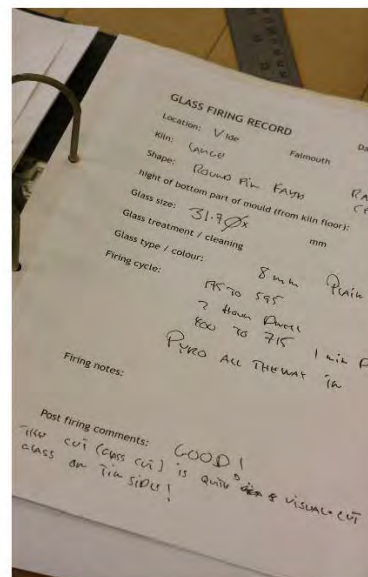 GLASS FIRING RECORD
Location: Falmouth
Kiln: LARGE
Shape: ROUND
hight of bottom part of mould (from kiln floor):
Glass size: 31.7 mm
Glass treatment / cleaning
Glass type / colour: 8mm PLAIN
Firing cycle: 175 TO 595
2 HOUR DWELL
TO 715 1 min
PYRO ALL THE WAY IN
Firing notes:
Post firing comments: GOOD!
CUT (GLASS CUT) IS QUITE VISUAL. CUT
GLASS ON TIN SIDE!